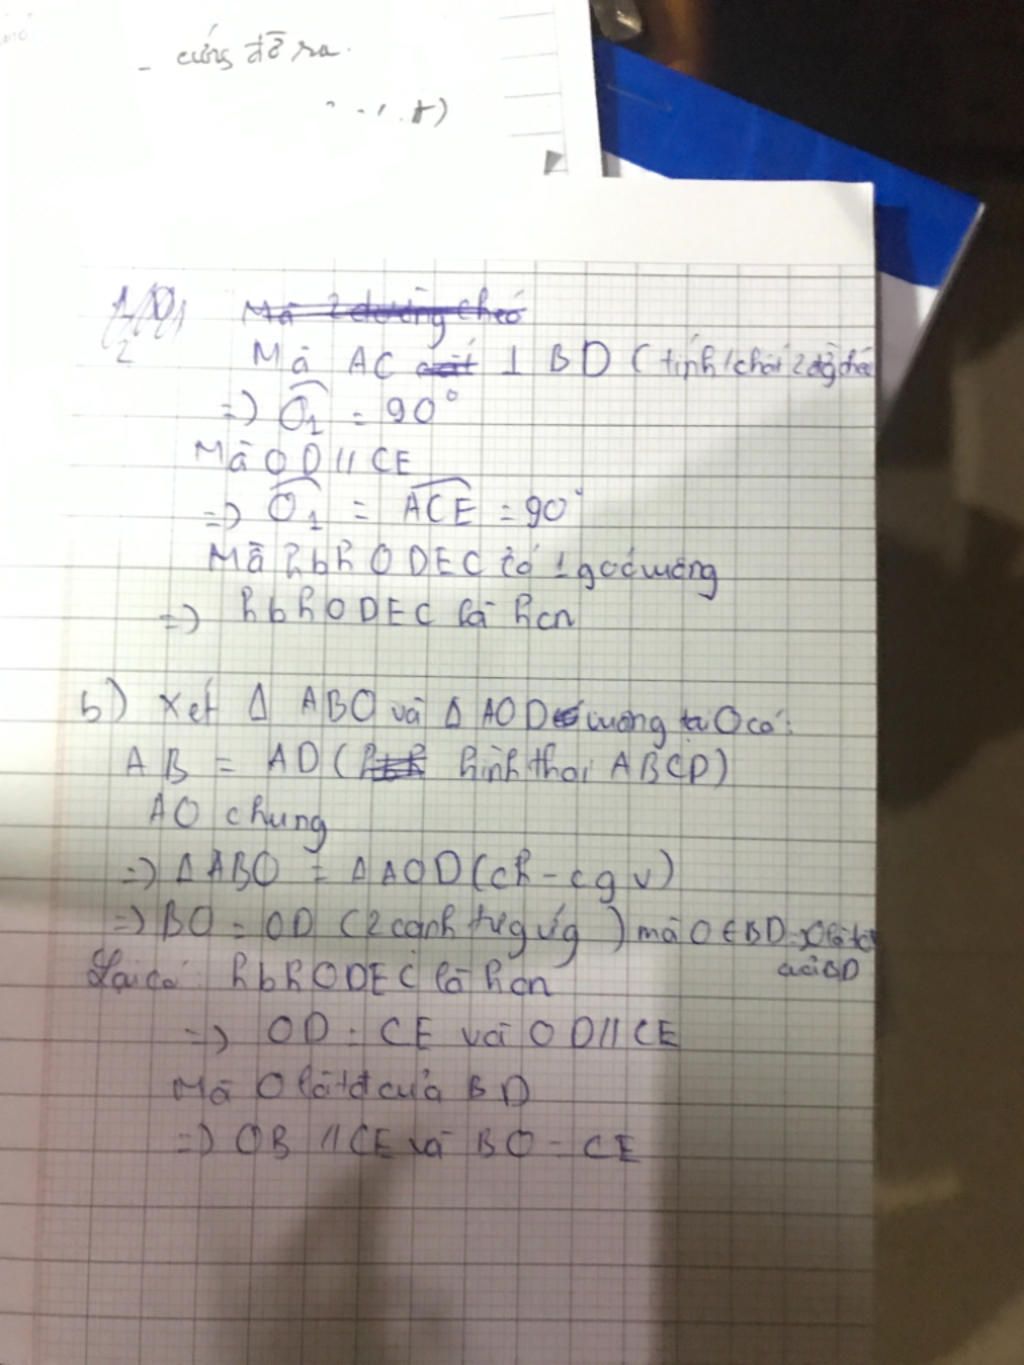 - cứng đỡ ra.
Mà 2 đường chéo
Mà AC cắt ⊥ BD (tính chất 2 đg chéo
=) Ô₁ = 90°
Mà OD // CE
=) Ô₁ = ACE = 90°
Mà hbh ODEC có 1 góc vuông
=) hbh ODEC là hcn
b) Xét Δ ABO và Δ AOD vuông tại O có:
AB = AD ( hình thoi ABCD)
AO chung
=) ΔABO = ΔAOD (ch - cgv)
=) BO = OD (2 cạnh tưg ứg) mà O ∈ BD =) O là tđ
của BD
Lại có: hbh ODEC là hcn
=) OD = CE và OD // CE
Mà O là tđ của BD
=) OB // CE và BO = CE